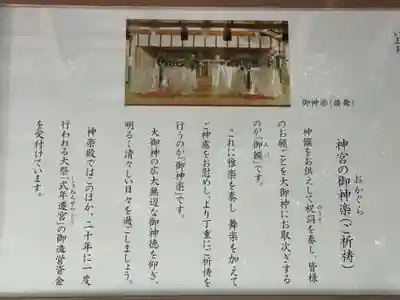 神宮の御神楽(ご祈祷)
おかぐら
神饌をお供えして祝詞を奏し、皆様
のりと
のお願ごとを大御神にお取次ぎする
のが「御饌」です。
みけ
これに雅楽を奏し舞楽を加えて
ご神慮をお慰めし、より丁重にご祈祷を
行うのが「御神楽」です。
大御神の広大無辺な御神徳を仰ぎ、
明るく清々しい日々を過ごしましょう。
神楽殿ではこのほか、二十年に一度
行われる大祭「式年遷宮」の御造営資金
しきねんせんぐう
を受付ています。
御神楽(倭舞)